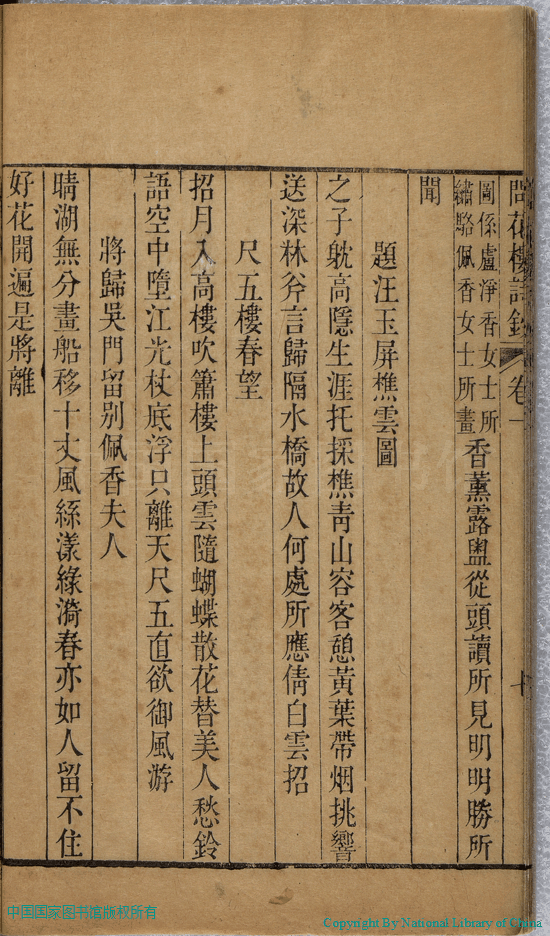 問花樓詩鈔 卷一
圖係盧淨香女士所
繡駱佩香女士所畫
香薰露盥從頭讀所見明明勝所
聞
題汪玉屏樵雲圖
之子躭高隱生涯托採樵青山容客憩黃葉帶烟挑響
送深林斧言歸隔水橋故人何處所應倩白雲招
尺五樓春望
招月入高樓吹簫樓上頭雲隨蝴蝶散花替美人愁鈴
語空中墮江光杖底浮只離天尺五直欲御風游
將歸吳門留別佩香夫人
晴湖無分畫船移十丈風絲漾綠漪春亦如人留不住
好花開遍是將離
中国国家图书馆版权所有
Copyright By National Library of China